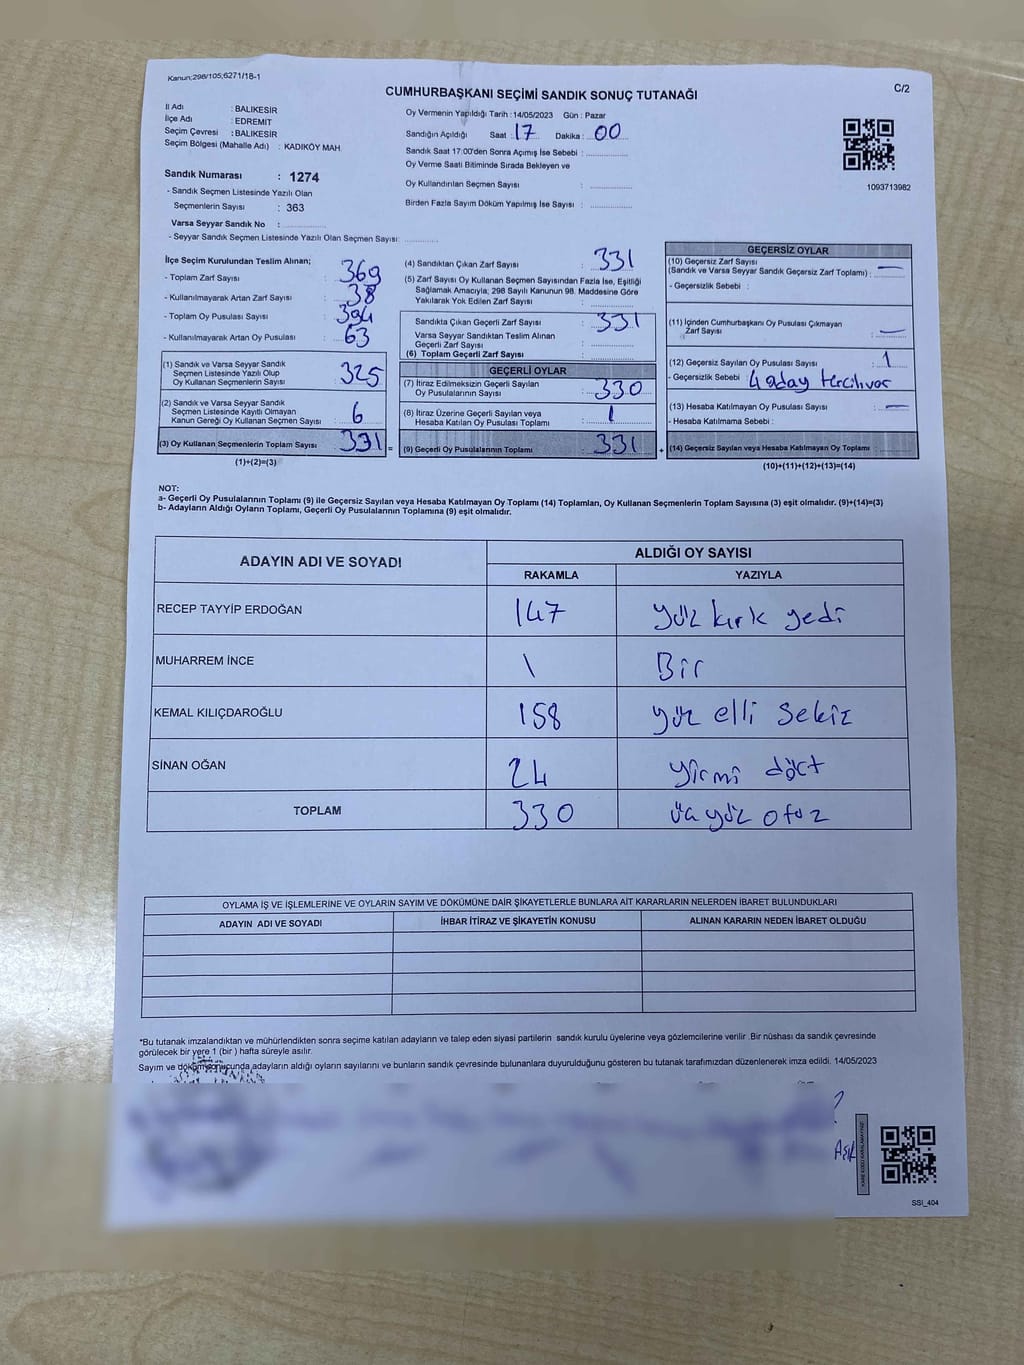 Kanun;298/105;6271/18-1
C/2
CUMHURBAŞKANI SEÇİMİ SANDIK SONUÇ TUTANAĞI
İl Adı : BALIKESİR
İlçe Adı : EDREMİT
Seçim Çevresi : BALIKESİR
Seçim Bölgesi (Mahalle Adı) : KADIKÖY MAH
Sandık Numarası : 1274
- Sandık Seçmen Listesinde Yazılı Olan
Seçmenlerin Sayısı : 363
Varsa Seyyar Sandık No :
- Seyyar Sandık Seçmen Listesinde Yazılı Olan Seçmen Sayısı:
Oy Vermenin Yapıldığı Tarih : 14/05/2023 Gün : Pazar
Sandığın Açıldığı Saat : 17 Dakika : 00
Sandık Saat 17:00'den Sonra Açımış İse Sebebi :
Oy Verme Saati Bitiminde Sırada Bekleyen ve
Oy Kullandırılan Seçmen Sayısı :
Birden Fazla Sayım Döküm Yapılmış İse Sayısı :
1093713982
İlçe Seçim Kurulundan Teslim Alınan;
- Toplam Zarf Sayısı : 369
- Kullanılmayarak Artan Zarf Sayısı : 38
- Toplam Oy Pusulası Sayısı : 394
- Kullanılmayarak Artan Oy Pusulası : 63
(1) Sandık ve Varsa Seyyar Sandık
Seçmen Listesinde Yazılı Olup
Oy Kullanan Seçmenlerin Sayısı : 325
(2) Sandık ve Varsa Seyyar Sandık
Seçmen Listesinde Kayıtlı Olmayan
Kanun Gereği Oy Kullanan Seçmen Sayısı : 6
(3) Oy Kullanan Seçmenlerin Toplam Sayısı : 331 =
(1)+(2)=(3)
(4) Sandıktan Çıkan Zarf Sayısı : 331
(5) Zarf Sayısı Oy Kullanan Seçmen Sayısından Fazla İse, Eşitliği
Sağlamak Amacıyla; 298 Sayılı Kanunun 98. Maddesine Göre
Yakılarak Yok Edilen Zarf Sayısı :
Sandıkta Çıkan Geçerli Zarf Sayısı : 331
Varsa Seyyar Sandıktan Teslim Alınan
Geçerli Zarf Sayısı :
(6) Toplam Geçerli Zarf Sayısı :
GEÇERLİ OYLAR
(7) İtiraz Edilmeksizin Geçerli Sayılan
Oy Pusulasının Sayısı : 330
(8) İtiraz Üzerine Geçerli Sayılan veya
Hesaba Katılan Oy Pusulası Toplamı : 1
(9) Geçerli Oy Pusulalarının Toplamı : 331 +
GEÇERSİZ OYLAR
(10) Geçersiz Zarf Sayısı
(Sandık ve Varsa Seyyar Sandık Geçersiz Zarf Toplamı) : —
- Geçersizlik Sebebi :
(11) İçinden Cumhurbaşkanı Oy Pusulası Çıkmayan
Zarf Sayısı : —
(12) Geçersiz Sayılan Oy Pusulası Sayısı : 1
- Geçersizlik Sebebi : 4 aday
(13) Hesaba Katılmayan Oy Pusulası Sayısı : —
- Hesaba Katılmama Sebebi :
(14) Geçersiz Sayılan veya Hesaba Katılmayan Oy Toplamı :
(10)+(11)+(12)+(13)=(14)
NOT:
a- Geçerli Oy Pusulalarının Toplamı (9) ile Geçersiz Sayılan veya Hesaba Katılmayan Oy Toplamı (14) Toplamları, Oy Kullanan Seçmenlerin Toplam Sayısına (3) eşit olmalıdır. (9)+(14)=(3)
b- Adayların Aldığı Oyların Toplamı, Geçerli Oy Pusulalarının Toplamına (9) eşit olmalıdır.
ADAYIN ADI VE SOYADI ALDIĞI OY SAYISI
RAKAMLA YAZIYLA
RECEP TAYYİP ERDOĞAN 147 yüz kırk yedi
MUHARREM İNCE 1 Bir
KEMAL KILIÇDAROĞLU 158 yüz elli sekiz
SİNAN OĞAN 24 yirmi dört
TOPLAM 330 üçyüz otuz
OYLAMA İŞ VE İŞLEMLERİNE VE OYLARIN SAYIM VE DÖKÜMÜNE DAİR ŞİKAYETLERLE BUNLARA AİT KARARLARIN NELERDEN İBARET BULUNDUKLARI
ADAYIN ADI VE SOYADI İHBAR İTİRAZ VE ŞİKAYETİN KONUSU ALINAN KARARIN NEDEN İBARET OLDUĞU
*Bu tutanak imzalandıktan ve mühürlendikten sonra seçime katılan adayların ve talep eden siyasi partilerin sandık kurulu üyelerine veya gözlemcilerine verilir .Bir nüshası da sandık çevresinde
görülecek bir yere 1 (bir ) hafta süreyle asılır.
Sayım ve döküm sonucunda adayların aldığı oyların sayılarını ve bunların sandık çevresinde bulunanlara duyurulduğunu gösteren bu tutanak tarafımızdan düzenlenerek imza edildi. 14/05/2023
SSI_404